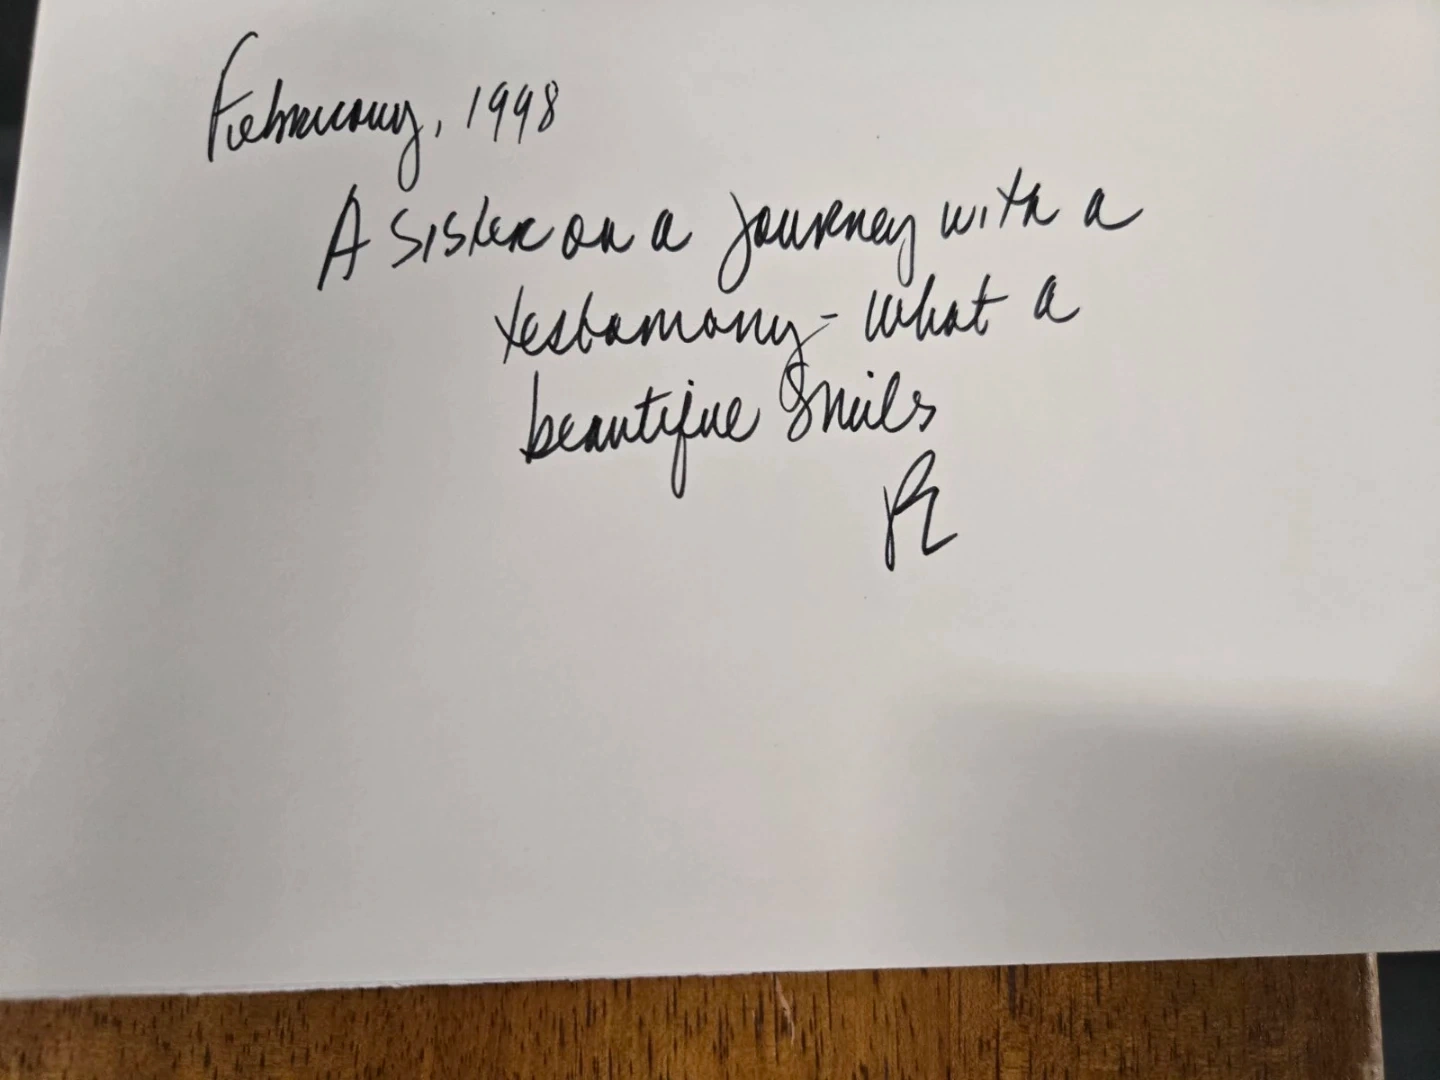 February, 1998
A sister on a journey with a
testamony - what a
beautiful smile
R